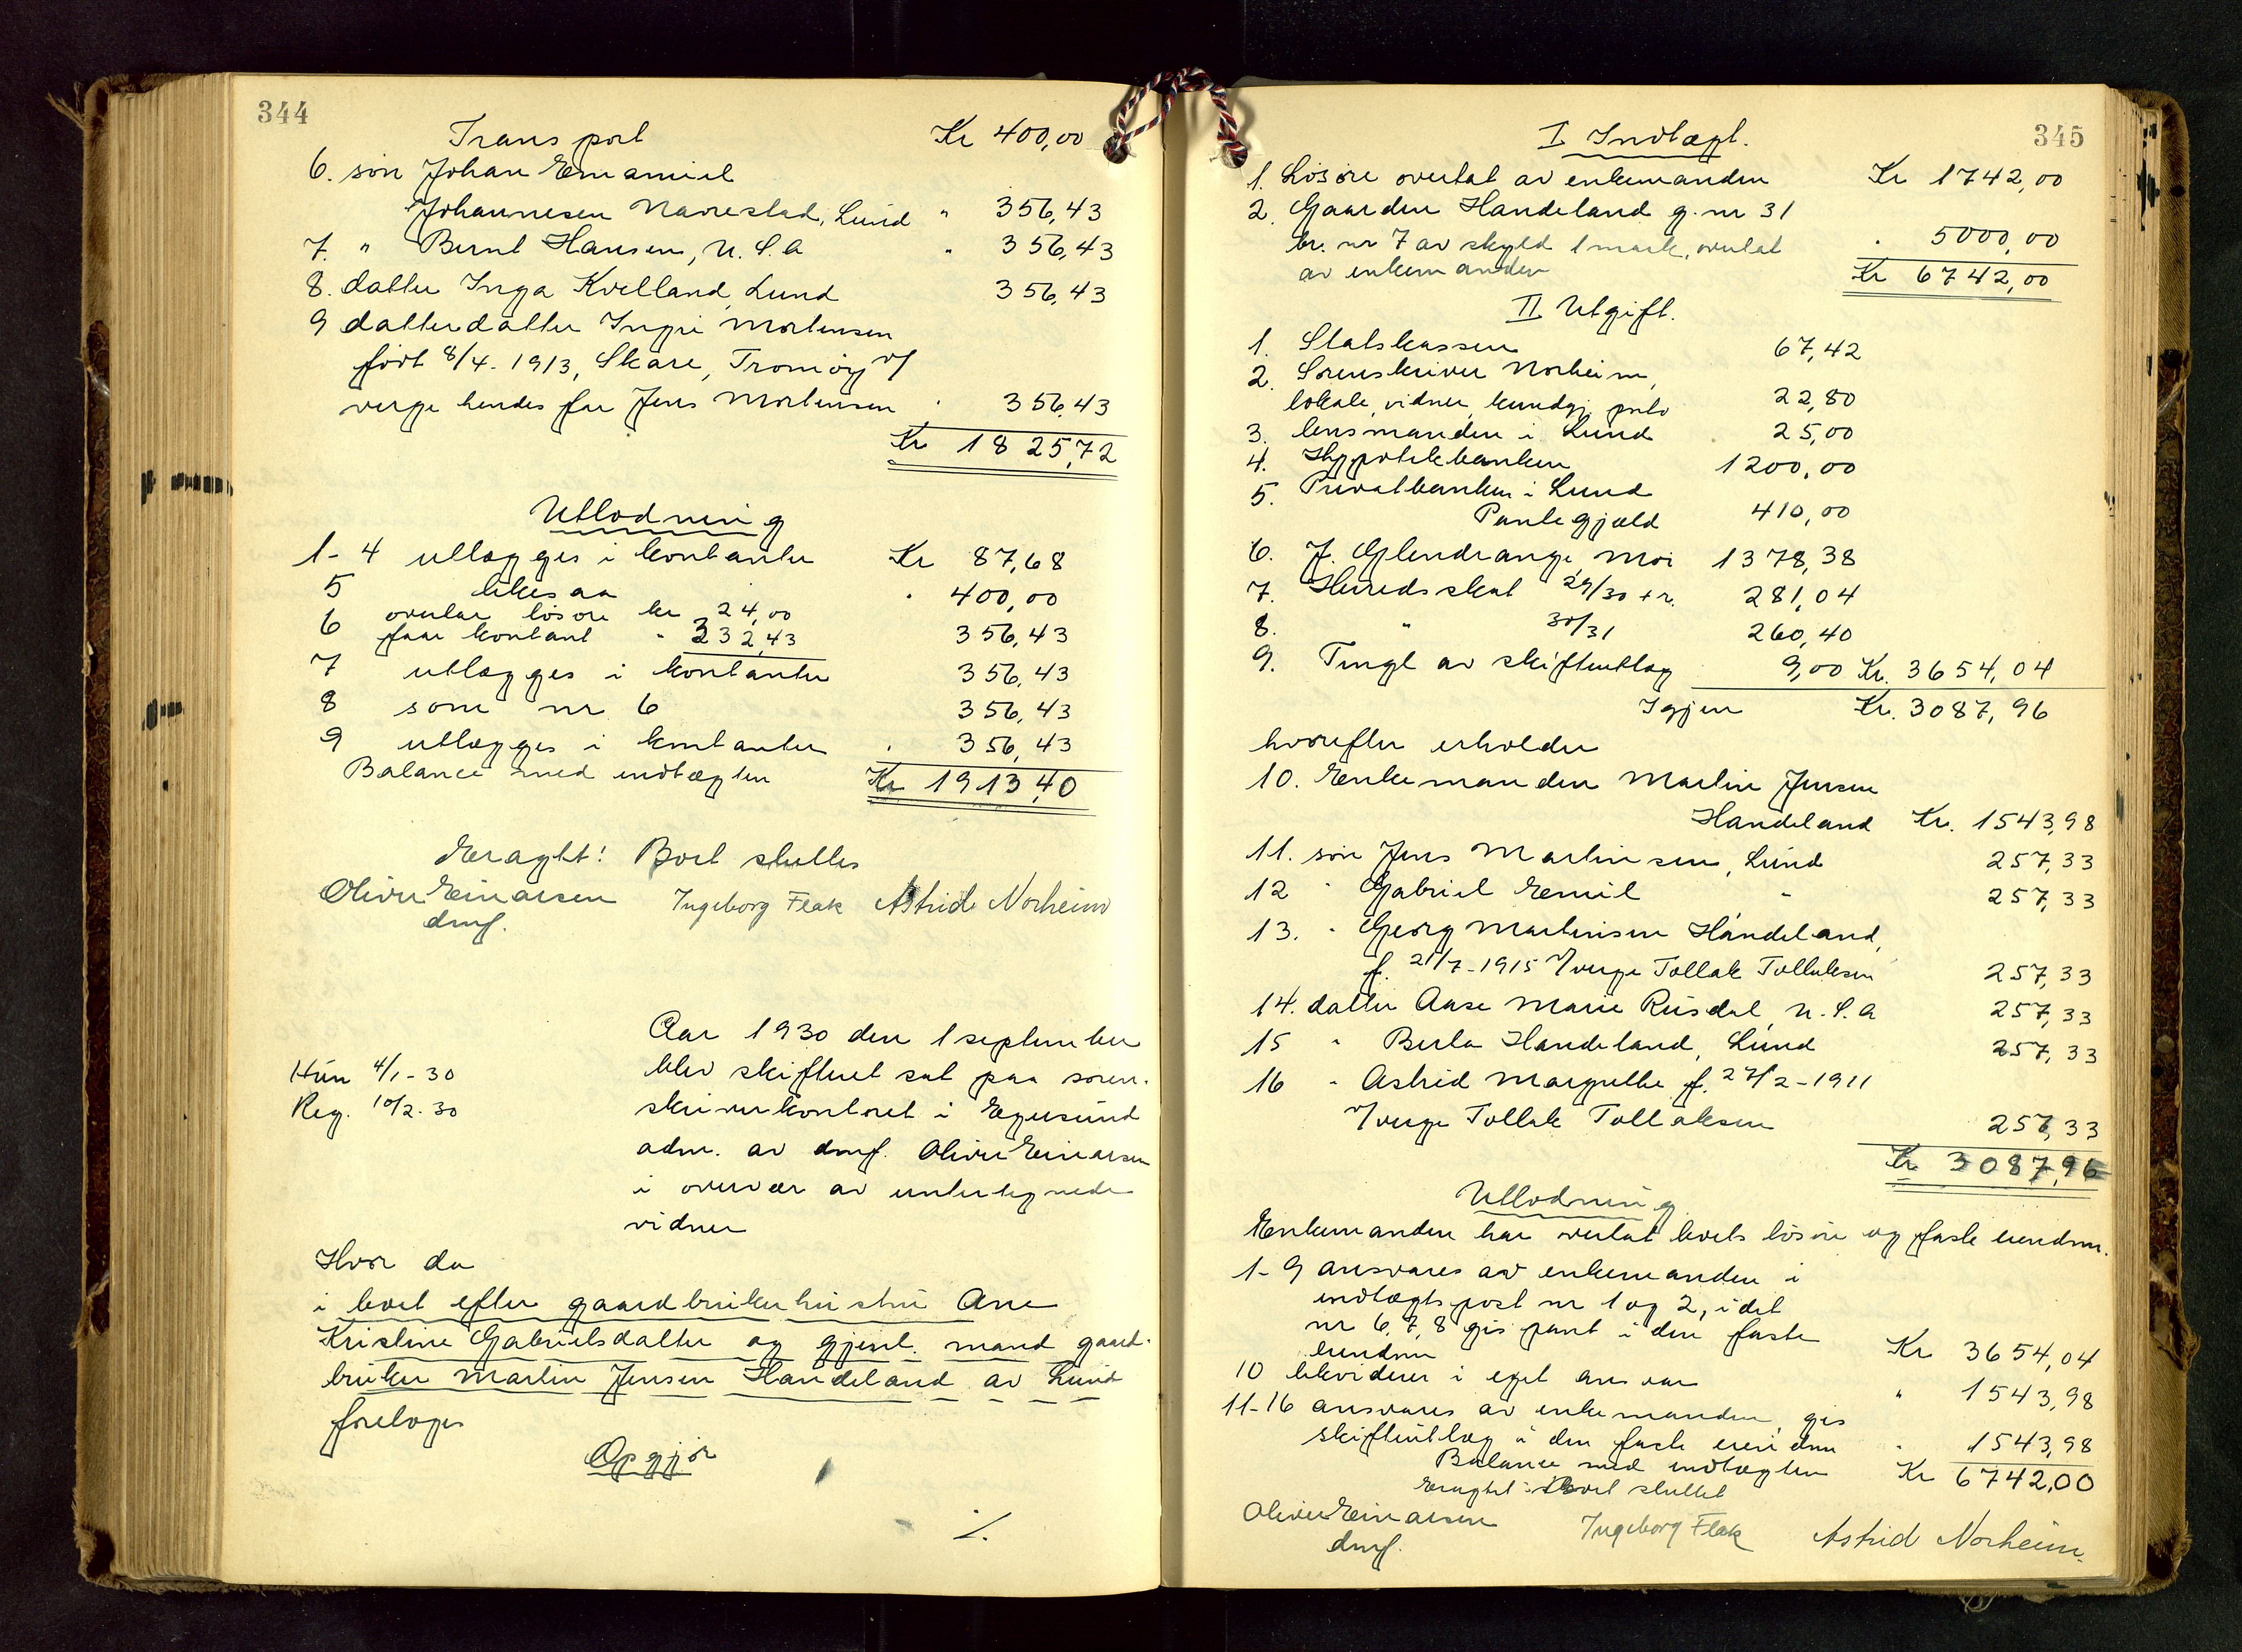 344
Transport Kr 400,00
6. søn Johan Emanuel
Johannesen Navrestad, Lund " 356,43
7. " Bernt Hansen, U.S.A " 356,43
8. datter Inga Kvelland, Lund 356,43
9 datterdatter Ingri Mortensen
født 8/4-1913, Skare, Tromøy v/
verge hendes far Jens Mortensen " 356,43
Kr 1825,72
Utlodning
1-4 utlægges i kontanter Kr 87,68
5 likesaa " 400,00
6 overtar løsøre kr 24,00
faar kontant " 332,43 356,43
7 utlægges i kontanter 356,43
8 som nr 6 356,43
9 utlægges i kontanter " 356,43
Balance med indtægten Kr 1913,40
Eragtet: Boet sluttes
Oliver Einarsen Ingeborg Fleak Astrid Norheim
dmf.
Aar 1930 den 1 september
Hun 4/1-30 blev skifteret sat paa soren-
Reg. 10/2-30 skriverkontoret i Egersund
adm. av dmf. Oliver Einarsen
i overvær av undertegnede
vidner
Hvor da
i boet efter gaardbrukerhustru Ane
Kristine Gabrielsdatter og gjenl. mand gaard-
bruker Martin Jensen Handeland av Lund
foretoges
Opgjør
./.
345
I Indtægt.
1. Løsøre overtat av enkemanden Kr 1742,00
2. Gaarden Handeland g. nr 31
br. nr 7 av skyld 1 mark, overtat " 5000,00
av enkemanden Kr 6742,00
II Utgift.
1. Statskassen 67,42
2. Sorenskriver Norheim,
lokale, vidner, kundgj. porto 22,80
3. lensmanden i Lund " 25,00
4. Hypotekbanken 1200,00
5. Privatbanken i Lund
Pantegjæld 410,00
6. J. Eglendrange, Moi 1378,38
7. Heredsskat 29/30 + r. 281,04
8. " 30/31 260,40
9. Tingl av skifteutlæg 9,00 Kr. 3654,04
Igjen Kr. 3087,96
hvorefter erholder
10. Enkemanden Martin Jensen
Handeland Kr. 1543,98
11. søn Jens Martinsen, Lund 257,33
12 " Gabriel Emil " 257,33
13. " Georg Martinsen Handeland,
f. 21/7-1915 v/verge Tollak Tollaksen 257,33
14. datter Aase Marie Rusdal, U.S.A 257,33
15 " Berta Handeland, Lund 257,33
16 " Astrid Margrethe f. 27/2-1911
v/verge Tollak Tollaksen 257,33
Kr 3087,96
Utlodning
Enkemanden har overtat boets løsøre og faste eiendom.
1-9 ansvares av enkemanden i
indtægtspost nr 1 og 2, idet
nr 6, 7, 8 gis pant i den faste
eiendom Kr 3654,04
10 likviderer i eget ansvar " 1543,98
11-16 ansvares av enkemanden, gis
skifteutlæg i den faste eiendom " 1543,98
Balance med indtægten Kr 6742,00
Eragtet: Boet sluttet
Oliver Einarsen Ingeborg Fleak Astrid Norheim
dmf.